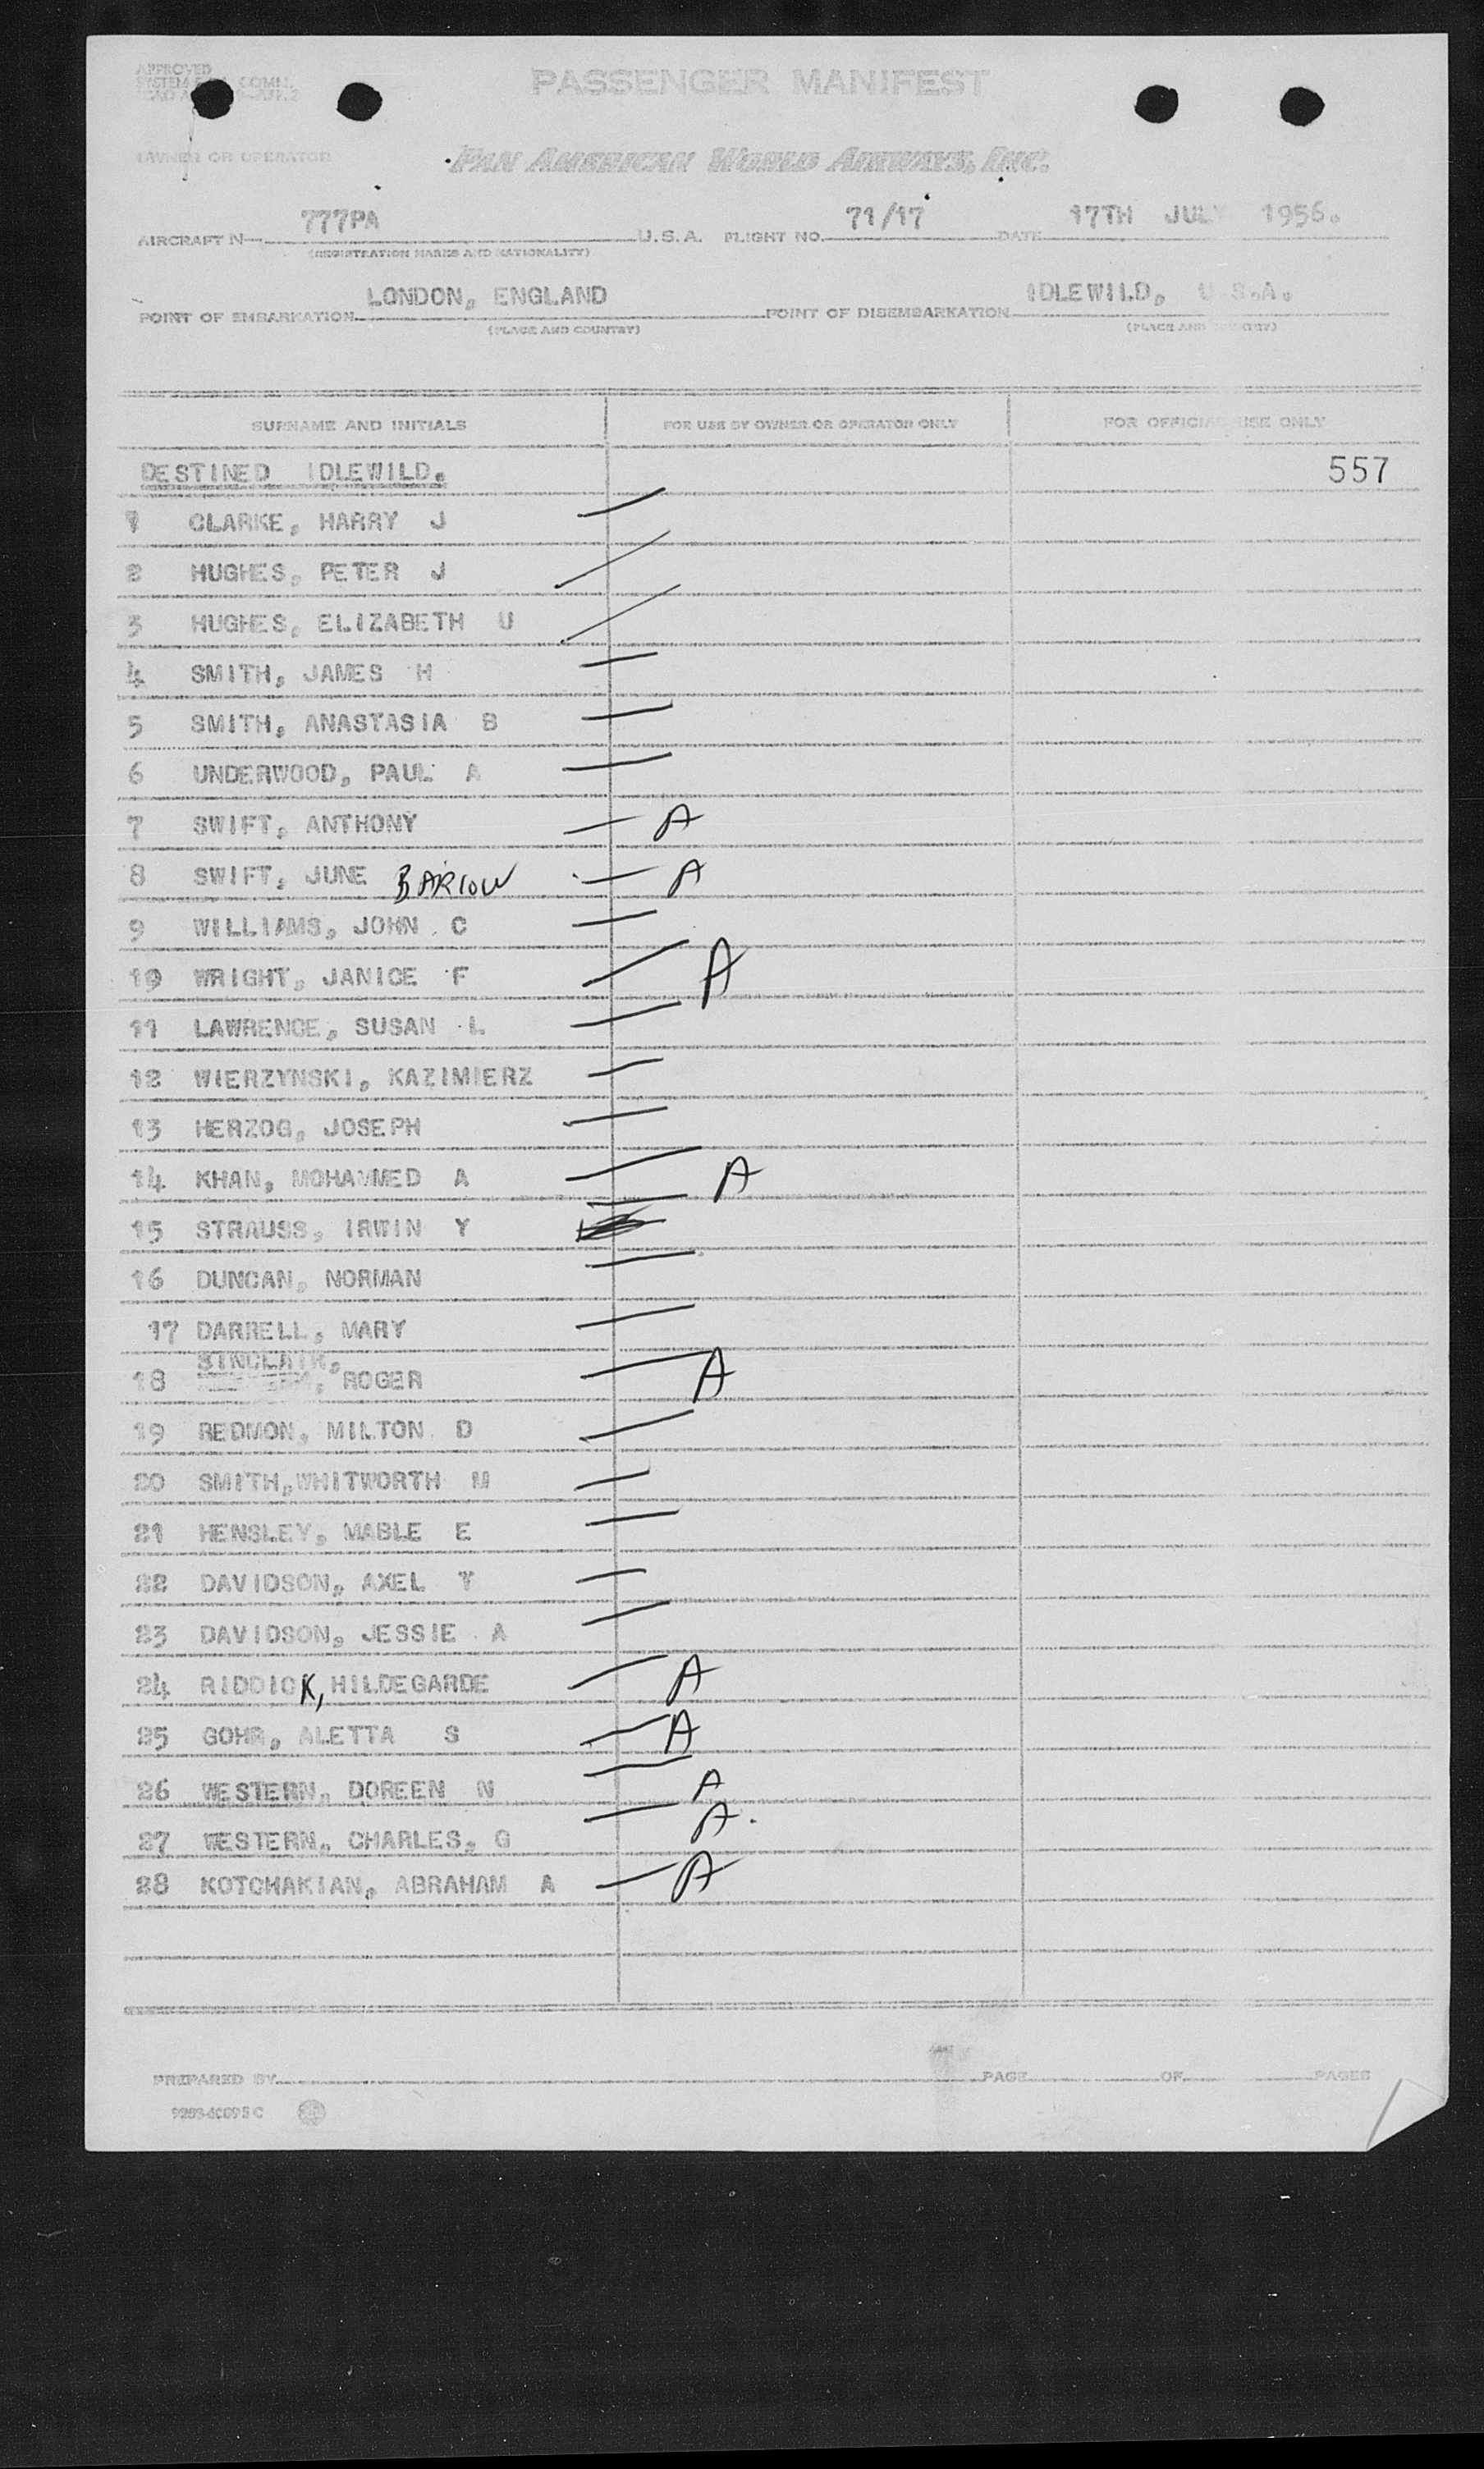 APPROVED
PASSENGER MANIFEST
OWNER OR OPERATOR PAN AMERICAN WORLD AIRWAYS, INC.
AIRCRAFT N— 777PA U.S.A. FLIGHT NO. 71/17 DATE 17TH JULY 1956.
(REGISTRATION MARKS AND NATIONALITY)
POINT OF EMBARKATION LONDON, ENGLAND POINT OF DISEMBARKATION IDLEWILD, U.S.A.
(PLACE AND COUNTRY) (PLACE AND COUNTRY)
SURNAME AND INITIALS FOR USE BY OWNER OR OPERATOR ONLY FOR OFFICIAL USE ONLY
DESTINED IDLEWILD. 557
1 CLARKE, HARRY J
2 HUGHES, PETER J
3 HUGHES, ELIZABETH U
4 SMITH, JAMES H
5 SMITH, ANASTASIA B
6 UNDERWOOD, PAUL A
7 SWIFT, ANTHONY A
8 SWIFT, JUNE BARLOW A
9 WILLIAMS, JOHN C
10 WRIGHT, JANICE F A
11 LAWRENCE, SUSAN L
12 WIERZYNSKI, KAZIMIERZ
13 HERZOG, JOSEPH
14 KHAN, MOHAMMED A A
15 STRAUSS, IRWIN Y
16 DUNCAN, NORMAN
17 DARRELL, MARY
18 SINCLAIR, ROGER A
19 REDMON, MILTON D
20 SMITH, WHITWORTH M
21 HENSLEY, MABLE E
22 DAVIDSON, AXEL T
23 DAVIDSON, JESSIE A
24 RIDDICK, HILDEGARDE A
25 GOHR, ALETTA S A
26 WESTERN, DOREEN N A
27 WESTERN, CHARLES, G A.
28 KOTCHAKIAN, ABRAHAM A A
PREPARED BY PAGE OF PAGES